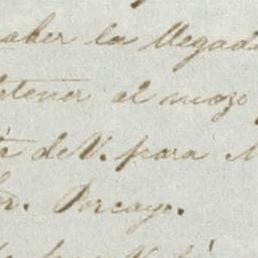 saber la llegada
detener al mozo
de V. para
or. Porcayo.